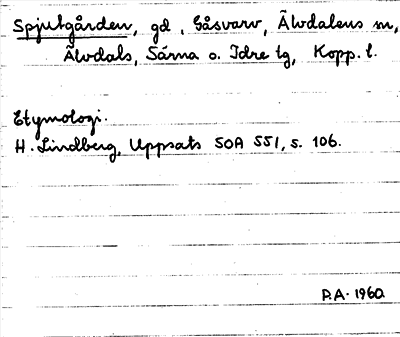 Spjutgården, gd, Gåsvarv, Älvdalens sn,
Älvdals, Särna o. Idre tg, Kopp. l.
Etymologi.
H. Lindberg, Uppsats SOA 551, s. 106.
P.A. 1960.